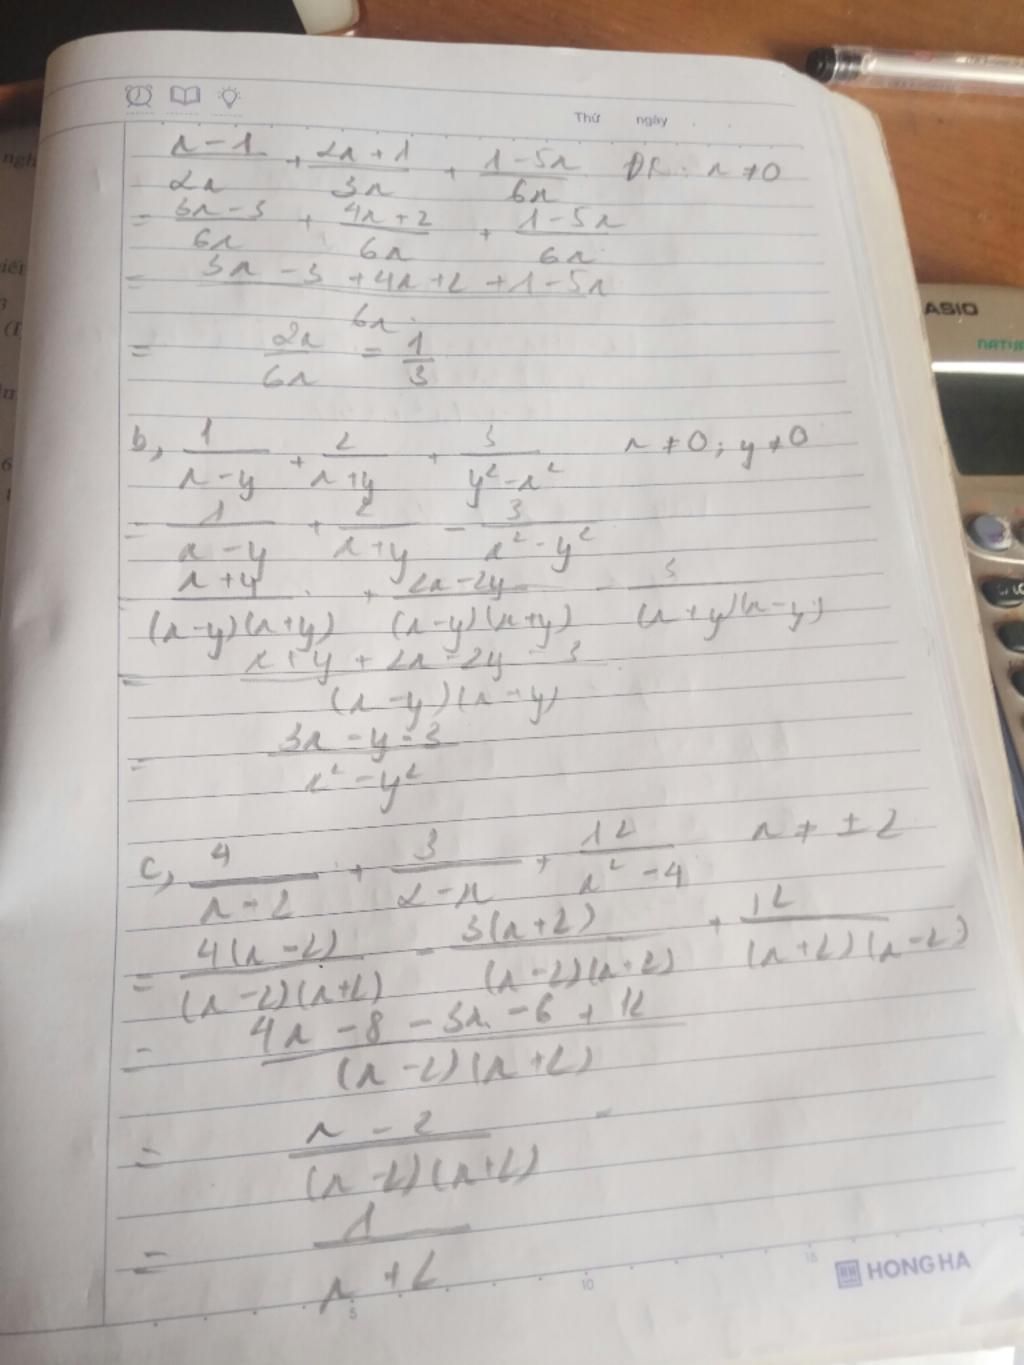 Thứ ngày
x-1/2x + 2x+1/3x + 1-5x/6x ĐK: x ≠ 0
= 3x-3/6x + 4x+2/6x + 1-5x/6x
= 3x-3+4x+2+1-5x/6x
= 2x/6x = 1/3
b, 1/x-y + 2/x+y + 3/y²-x² x ≠ 0; y ≠ 0
= 1/x-y + 2/x+y - 3/x²-y²
= x+y/(x-y)(x+y) + 2x-2y/(x-y)(x+y) - 3/(x+y)(x-y)
= x+y+2x-2y-3/(x-y)(x+y)
= 3x-y-3/x²-y²
c, 4/x+2 + 3/2-x + 12/x²-4 x ≠ ±2
= 4(x-2)/(x-2)(x+2) - 3(x+2)/(x-2)(x+2) + 12/(x+2)(x-2)
= 4x-8-3x-6+12/(x-2)(x+2)
= x-2/(x-2)(x+2)
= 1/x+2
HONG HA
5 10 15
ASIO